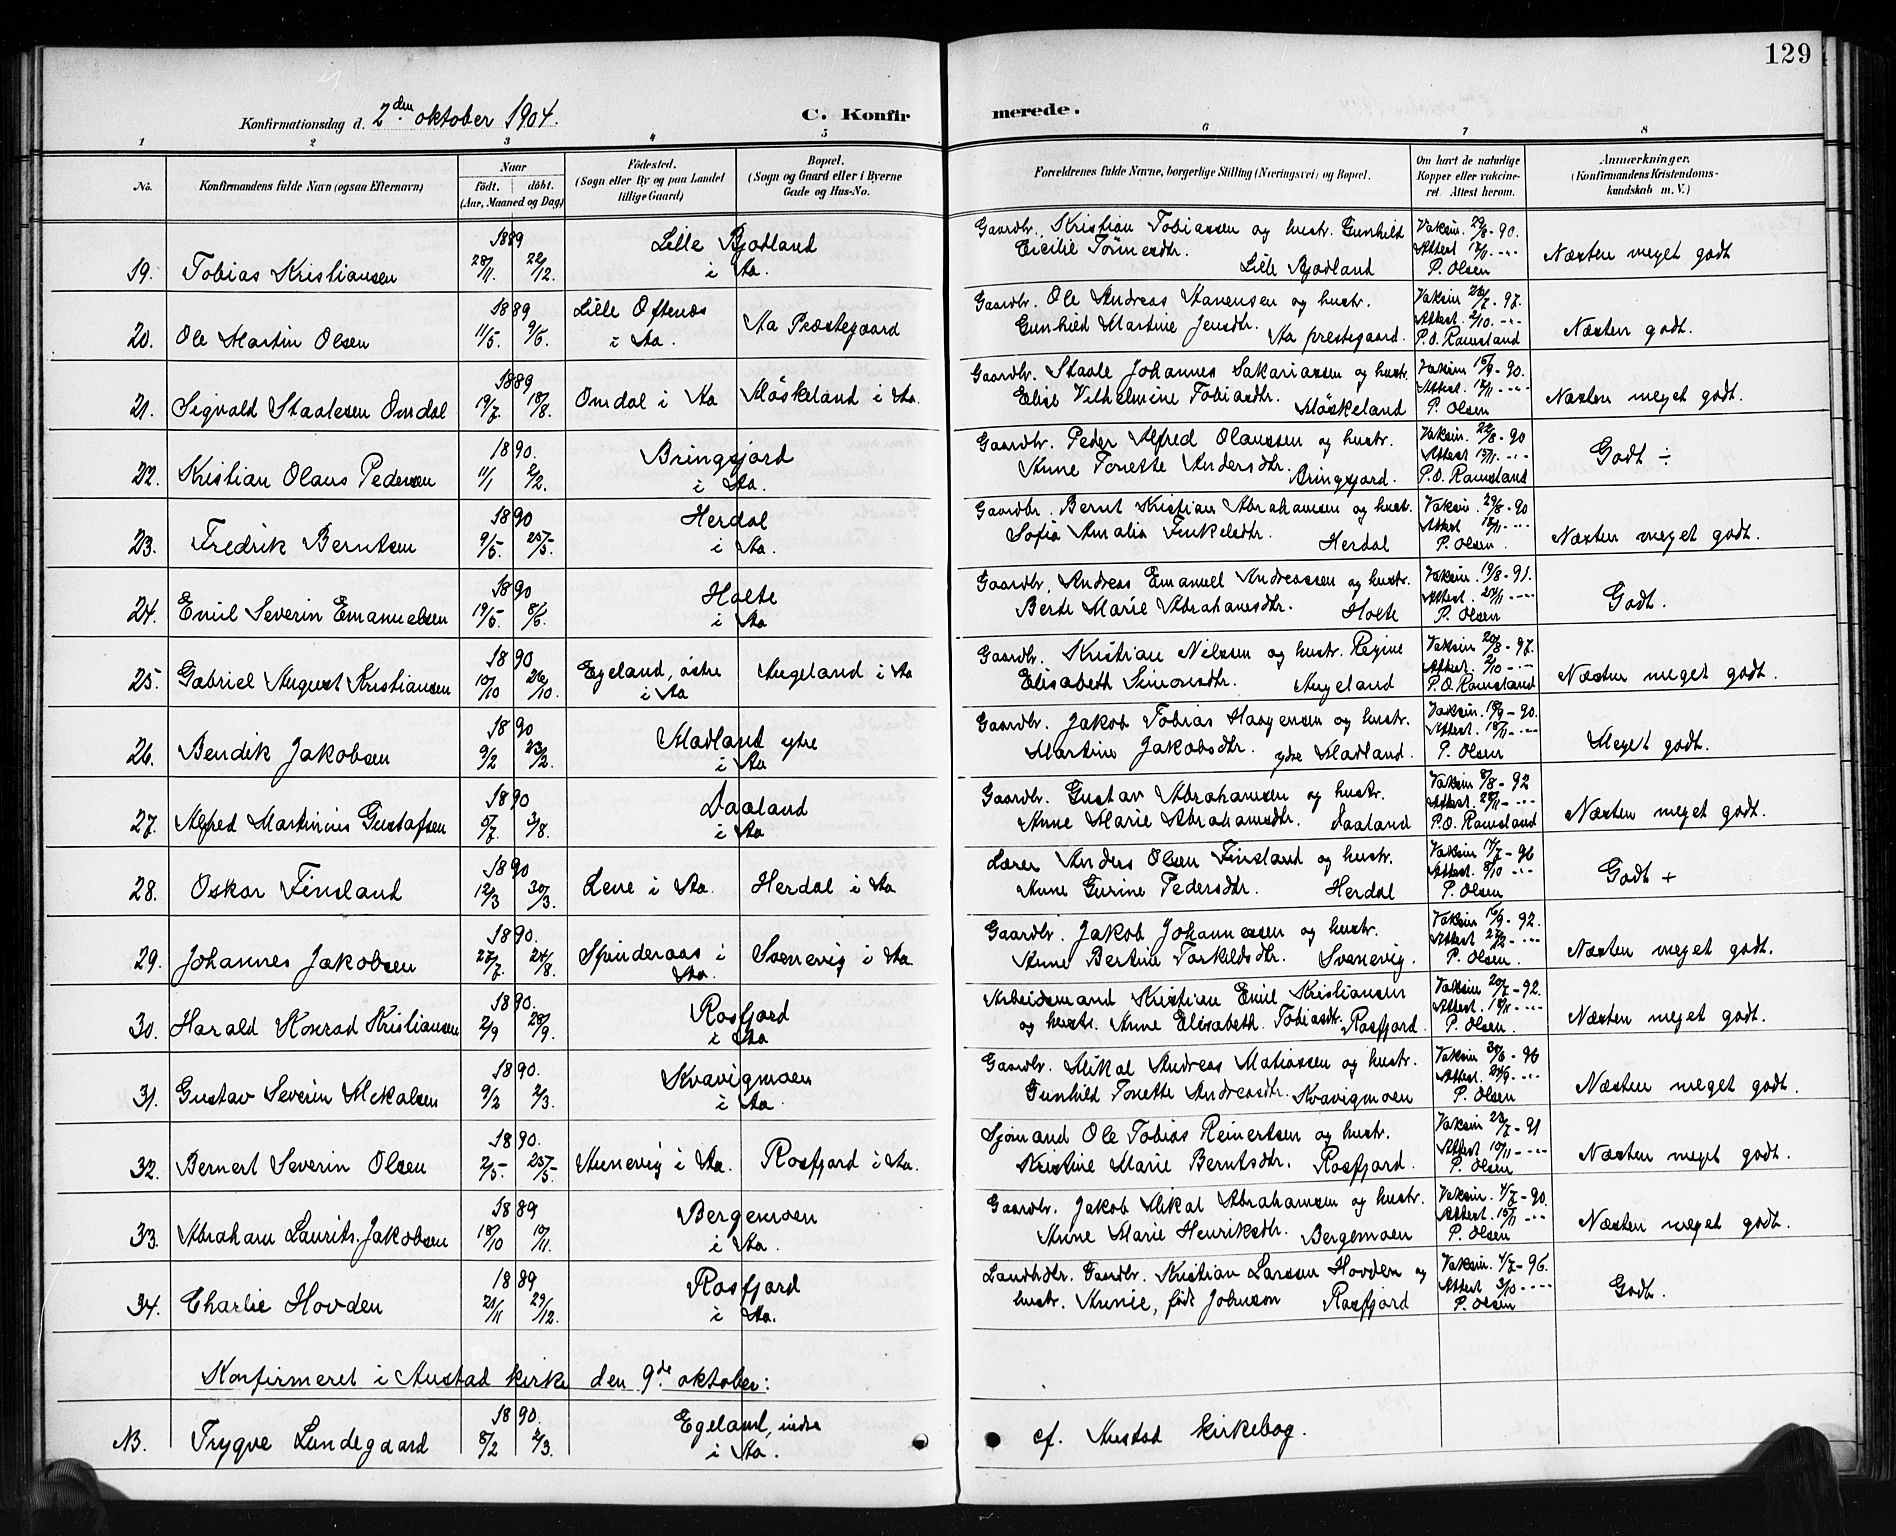 129
Konfirmationsdag d. 2den oktober 1904.
C. Konfirmerede.
1 2 3 4 5 6 7 8
No.
Konfirmandens fulde Navn (ogsaa Efternavn)
Naar
født. døbt.
(Aar, Maaned og Dag)
Fødested.
(Sogn eller By og paa Landet
tillige Gaard)
Bopæl.
(Sogn og Gaard eller i Byerne
Gade og Hus-No.
Forældrenes fulde Navne, borgerlige Stilling (Næringsvei) og Bopæl.
Om havt de naturlige
Kopper eller vakcine-
ret. Attest herom.
Anmærkninger.
(Konfirmandens Kristendoms-
kundskab m. V.)
19. Tobias Kristiansen 1889 28/11 22/12. Lille Bjodland i Aa.
Gaardbr. Kristian Tobiassen og hustr. Gunhild
Cicilie Tønnesdtr. Lille Bjodland
Vaksin. 29/8-90.
P. Olsen
Næsten meget godt
20. Ole Martin Olsen 1889 11/5. 9/6. Lille Oftenæs i Aa. Aa Præstegaard
Gaardbr. Ole Andreas Aanensen og hustr.
Gunhild Martine Jensdtr. Aa prestegaard.
Attest. 2/10.
P.O. Ramsland
Næsten godt.
21. Sigvald Staalesen Omdal 1889 19/7. 18/8. Omdal i Aa Møskeland i Aa.
Gaardbr. Staale Johannes Sakariassen og hustr.
Elise Vilhelmine Tobiasdtr. Møskeland
P. Olsen
Næsten meget godt.
22. Kristian Olaus Pedersen 1890. 11/1 2/2. Bringsjord i Aa.
Gaardbr. Peder Alfred Olaussen og hustr.
Anne Tonette Andersdtr. Bringsjord.
Vaksin. 22/8-90
P.O. Ramsland
Godt ÷
23. Fredrik Berntsen 1890 9/5. 25/5. Herdal i Aa.
Gaardbr. Bernt Kristian Abrahamsen og hustr.
Sofia Amalia Finkelsdtr. Herdal
Vaksin. 29/8-90
P. Olsen.
Næsten meget godt.
24. Emil Severin Emanuelsen 1890 19/5. 8/6. Holte i Aa
Gaardbr. Andreas Emanuel Andreassen og hustr.
Berte Marie Abrahamsdtr. Holte
Vaksin. 19/8-91.
P. Olsen
Godt.
25. Gabriel August Kristiansen 1890 10/10 26/10. Egeland, østre i Aa Augeland i Aa
Gaardbr. Kristian Nilsen og hustr. Regine
Elisabeth Simonsdtr. Augeland
Vaksin 20/8-97.
P.O. Ramsland
Næsten meget godt.
26. Bendik Jakobsen 1890 9/2 23/2. Madland ytre i Aa
Gaardbr. Jakob Tobias Haagensen og hustr.
Martine Jakobsdtr. ydre Madland.
P. Olsen
Meget godt.
27. Alfred Martinius Gustafsen 1890 6/7. 3/8. Daaland i Aa
Gaardbr. Gustav Abrahamsen og hustr.
Anne Marie Abrahamsdtr. Daaland
Vaksin 8/8-92
P.O. Ramsland
Næsten meget godt.
28. Oskar Finsland 1890 12/3 30/3. Lene i Aa. Herdal i Aa
Lærer Anders Olsen Finsland og hustr.
Anne Gurine Pedersdtr. Herdal
Vaksin 14/7-96
P. Olsen
Godt +
29. Johannes Jakobsen 1890. 27/7. 24/8. Spinderaas i Aa. Svenevig i Aa
Gaardbr. Jakob Johannessen og hustr.
Anne Bertine Torkildsdtr. Svenevig.
Vaksin 16/9-92.
P. Olsen.
Næsten meget godt.
30. Harald Konrad Kristiansen 1890. 2/9 28/9. Rosfjord i Aa
Arbeidsmand Kristian Emil Kristiansen
og hustr. Anne Elisabeth Tobiasdtr. Rosfjord.
Vaksin 20/7-92.
P. Olsen.
Næsten meget godt.
31. Gustav Severin Mikalsen 1890. 9/2 2/3. Kvavigmoen i Aa
Gaardbr. Mikal Andreas Matiassen og hustr.
Gunhild Tonette Andreasdtr. Kvavigmoen
Vaksin 30/6-96
Attest. 24/9
P. Olsen
Næsten meget godt.
32. Bernert Severin Olsen 1890. 2/5- 25/5- Aunevig i Aa. Rosfjord i Aa.
Sjømand Ole Tobias Reinertsen og hustr.
Kristine Marie Berntsdtr. Rosfjord.
Vaksin. 23/7-91
P. Olsen
Næsten meget godt.
33. Abraham Laurits. Jakobsen 1889 18/10 10/11. Bergemoen i Aa.
Gaardbr. Jakob Mikal Abrahamsen og hustr.
Anne Marie Henriksdtr. Bergemoen
Vaksin. 4/7-90.
P. Olsen
Næsten meget godt.
34. Charlie Hovden 1889 21/11 29/12. Rosfjord i Aa.
Landhdlr. Gaardbr. Kristian Larssen Hovden og
hustr. Annie, født Johnson Rosfjord
Vaksin. 4/7-96.
Attest 3/10
P. Olsen
Godt.
Konfirmeret i Austad kirke den 9de oktober:
NB. Trygve Lundegaard 1890. 8/2 2/3. Egeland, indre i Aa.
cf. Austad kirkebog.